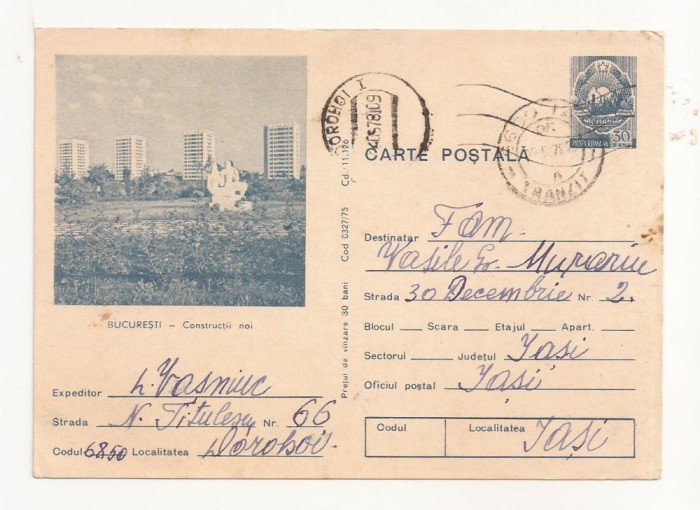 BUCUREȘTI — Construcții noi
Expeditor L. Vasniuc
Strada N. Titulescu Nr. 66
Codul 6850 Localitatea Dorohoi
Prețul de vînzare 30 bani Cod 0327/75 Cd. 11.126
DOROHOI 1
TRANZIT
POSTA ROMANA
30
CARTE POȘTALĂ
Destinatar Fam.
Vasile Gr. Murariu
Strada 30 Decembrie Nr. 2.
Blocul Scara Etajul Apart.
Sectorul Județul Iasi
Oficiul poștal Iași
Codul Localitatea
Iași